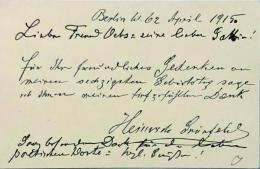 Berlin W. 62 April 1915
Lieber Freund Ochs u. seine liebe Gattin!
Für Ihr freundliches Gedenken an
meinen sechzigsten Geburtstag sage
ich Ihnen meinen tiefgefühlten Dank
Heinrich Grünfeld
Ganz besonderen Dank für die lieben
poetischen Worte u. herzl. Grüße!